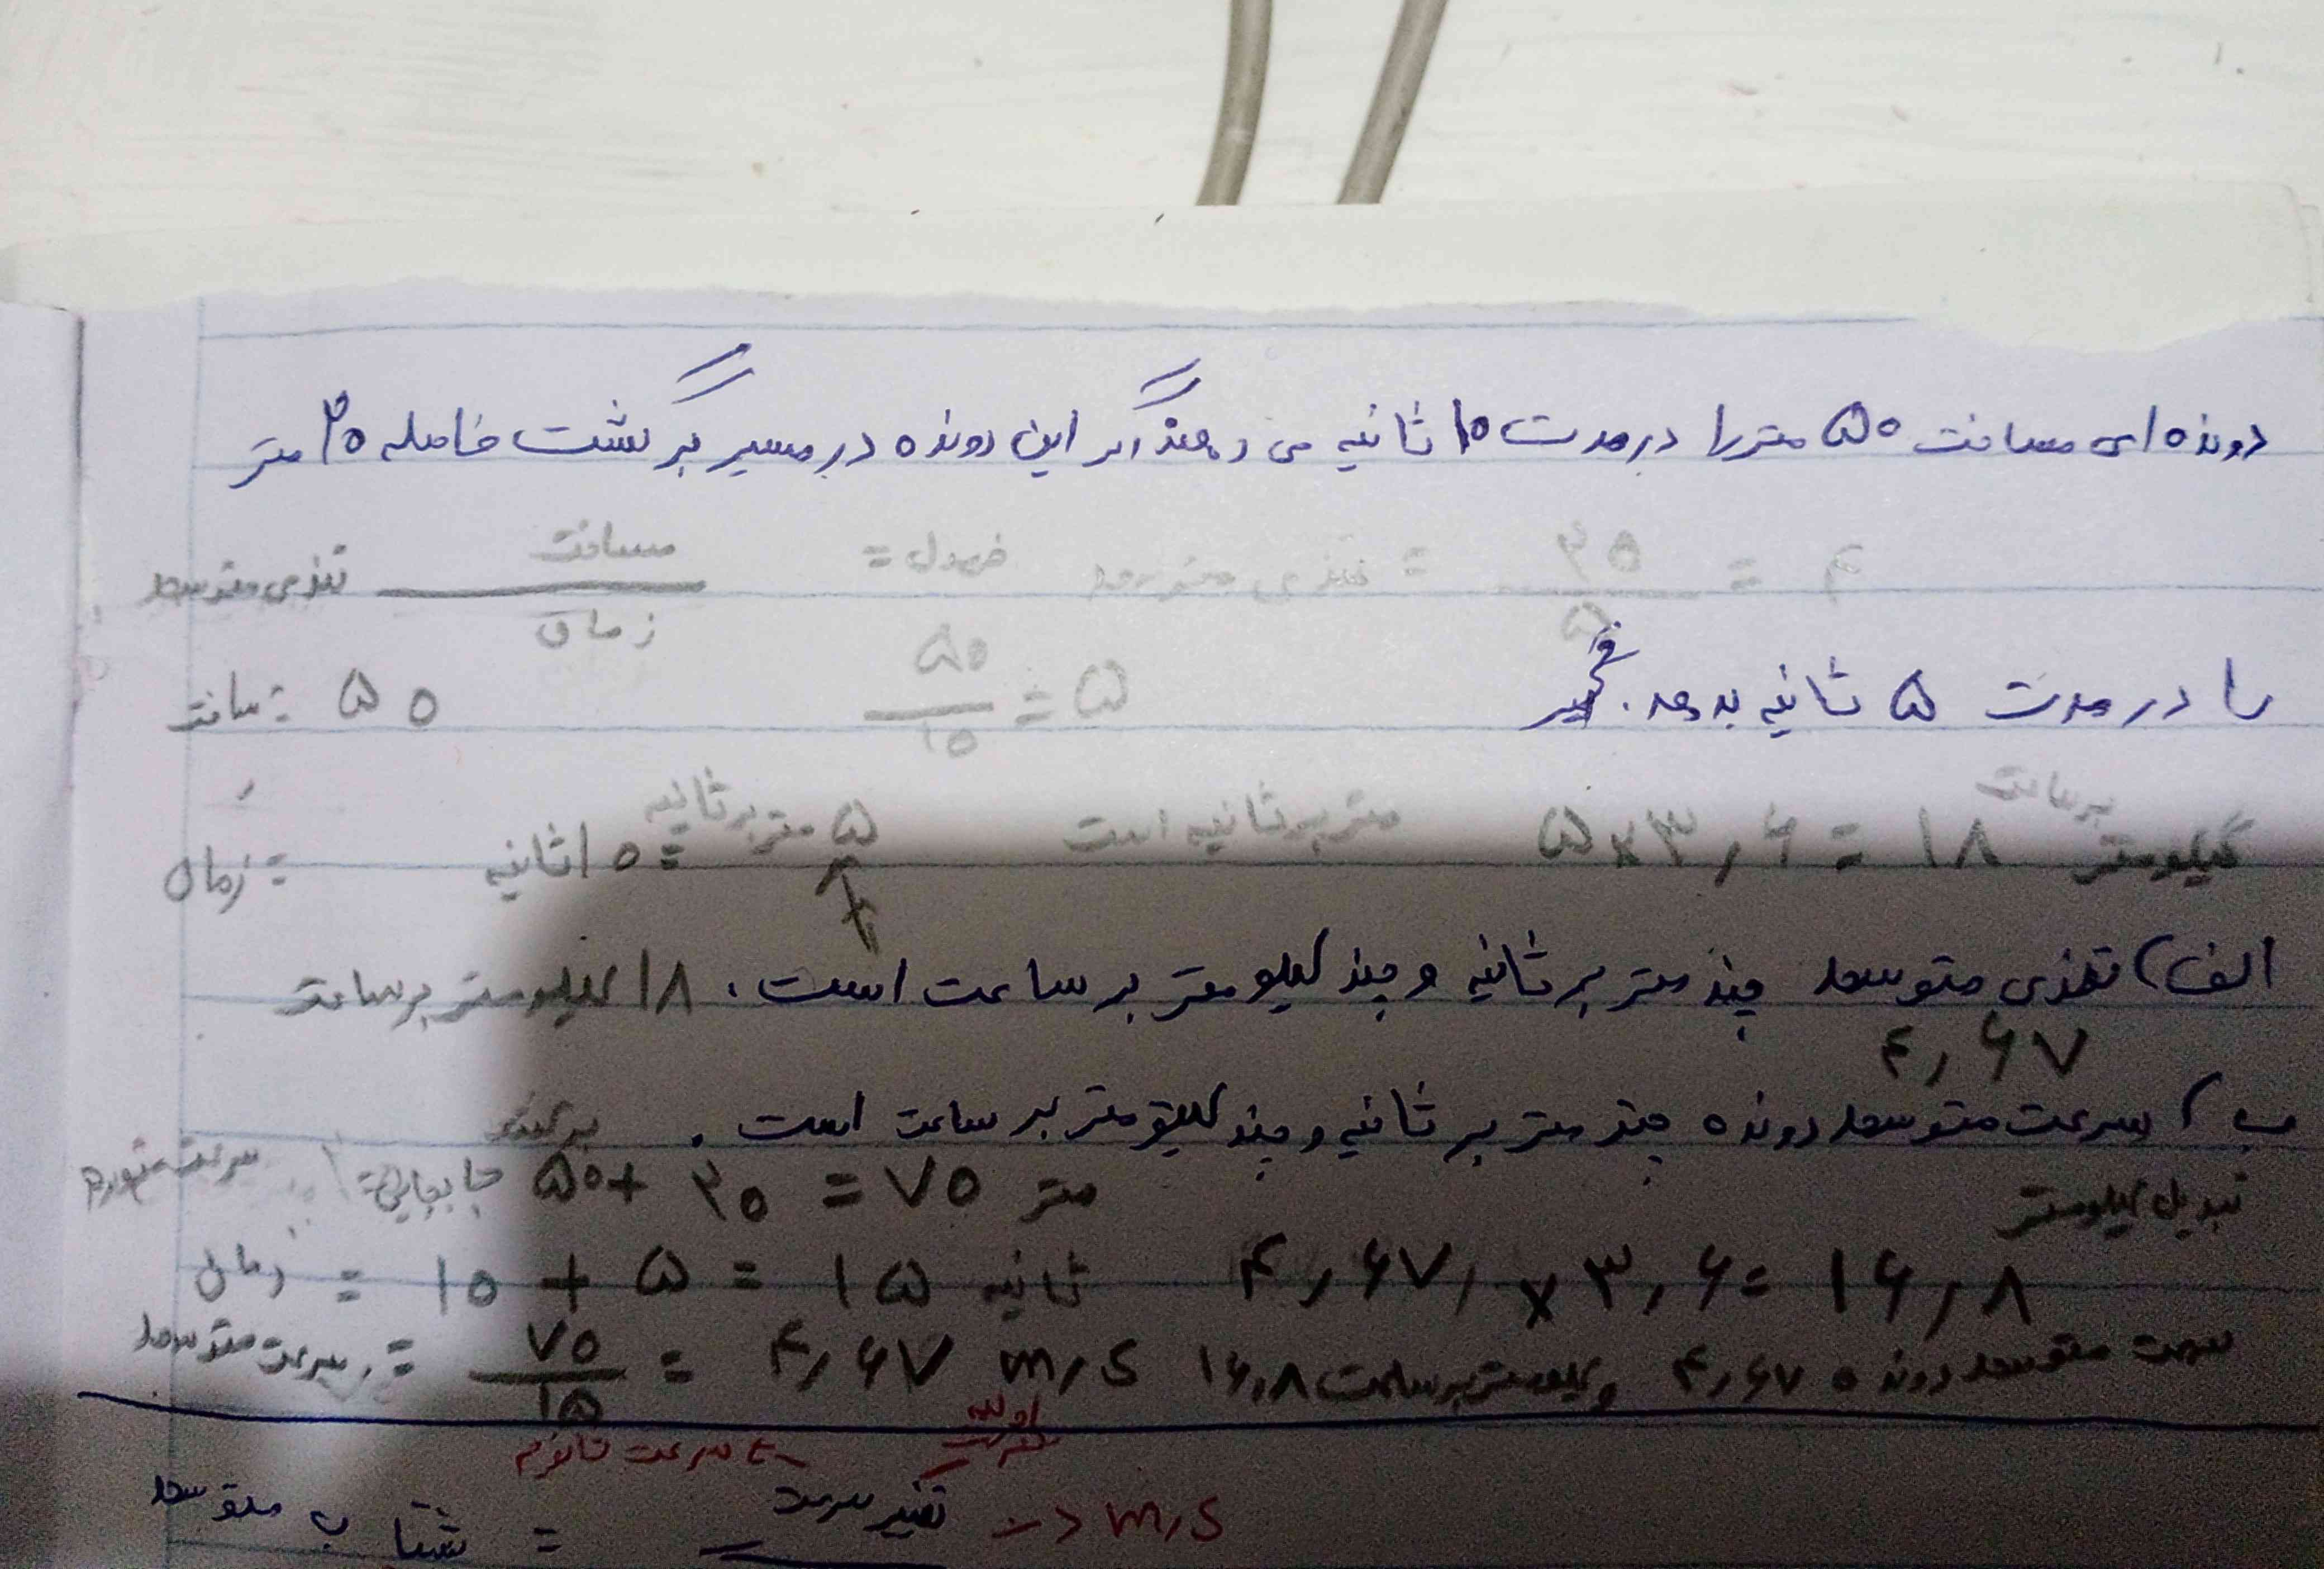 دونده ای مسافت ۵۰ متر را در مدت ۱۰ ثانیه می دهند اگر این دونده در مسیر برگشت فاصله ۲۰ متر
تندی متوسط مسافت / زمان فرمول = تندی متوسط = ۲۵ / ۵ = ۴
را در مدت ۵ ثانیه بدهد.
مسافت = ۵۰ ۵۰ / ۱۰ = ۵
زمان = ۱۰ ثانیه ۵ متر بر ثانیه متر بر ثانیه است ۵ × ۳٫۶ = ۱۸ کیلومتر بر ساعت
الف) تندی متوسط چند متر بر ثانیه و چند کیلومتر بر ساعت است. ۱۸ کیلومتر بر ساعت
۴٫۶۷
ب) سرعت متوسط دونده چند متر بر ثانیه و چند کیلومتر بر ساعت است.
سرعت متوسط جابجایی = ۵۰ + ۲۰ = ۷۵ متر تبدیل کیلومتر
زمان = ۱۰ + ۵ = ۱۵ ثانیه ۴٫۶۷ × ۳٫۶ = ۱۶٫۸
سرعت متوسط = ۷۵ / ۱۵ = ۴٫۶۷ m/s سرعت متوسط دونده ۴٫۶۷ و کیلومتر بر ساعت ۱۶٫۸
سرعت ثانویه اولیه
شتاب متوسط = تغییر سرعت –> m/s